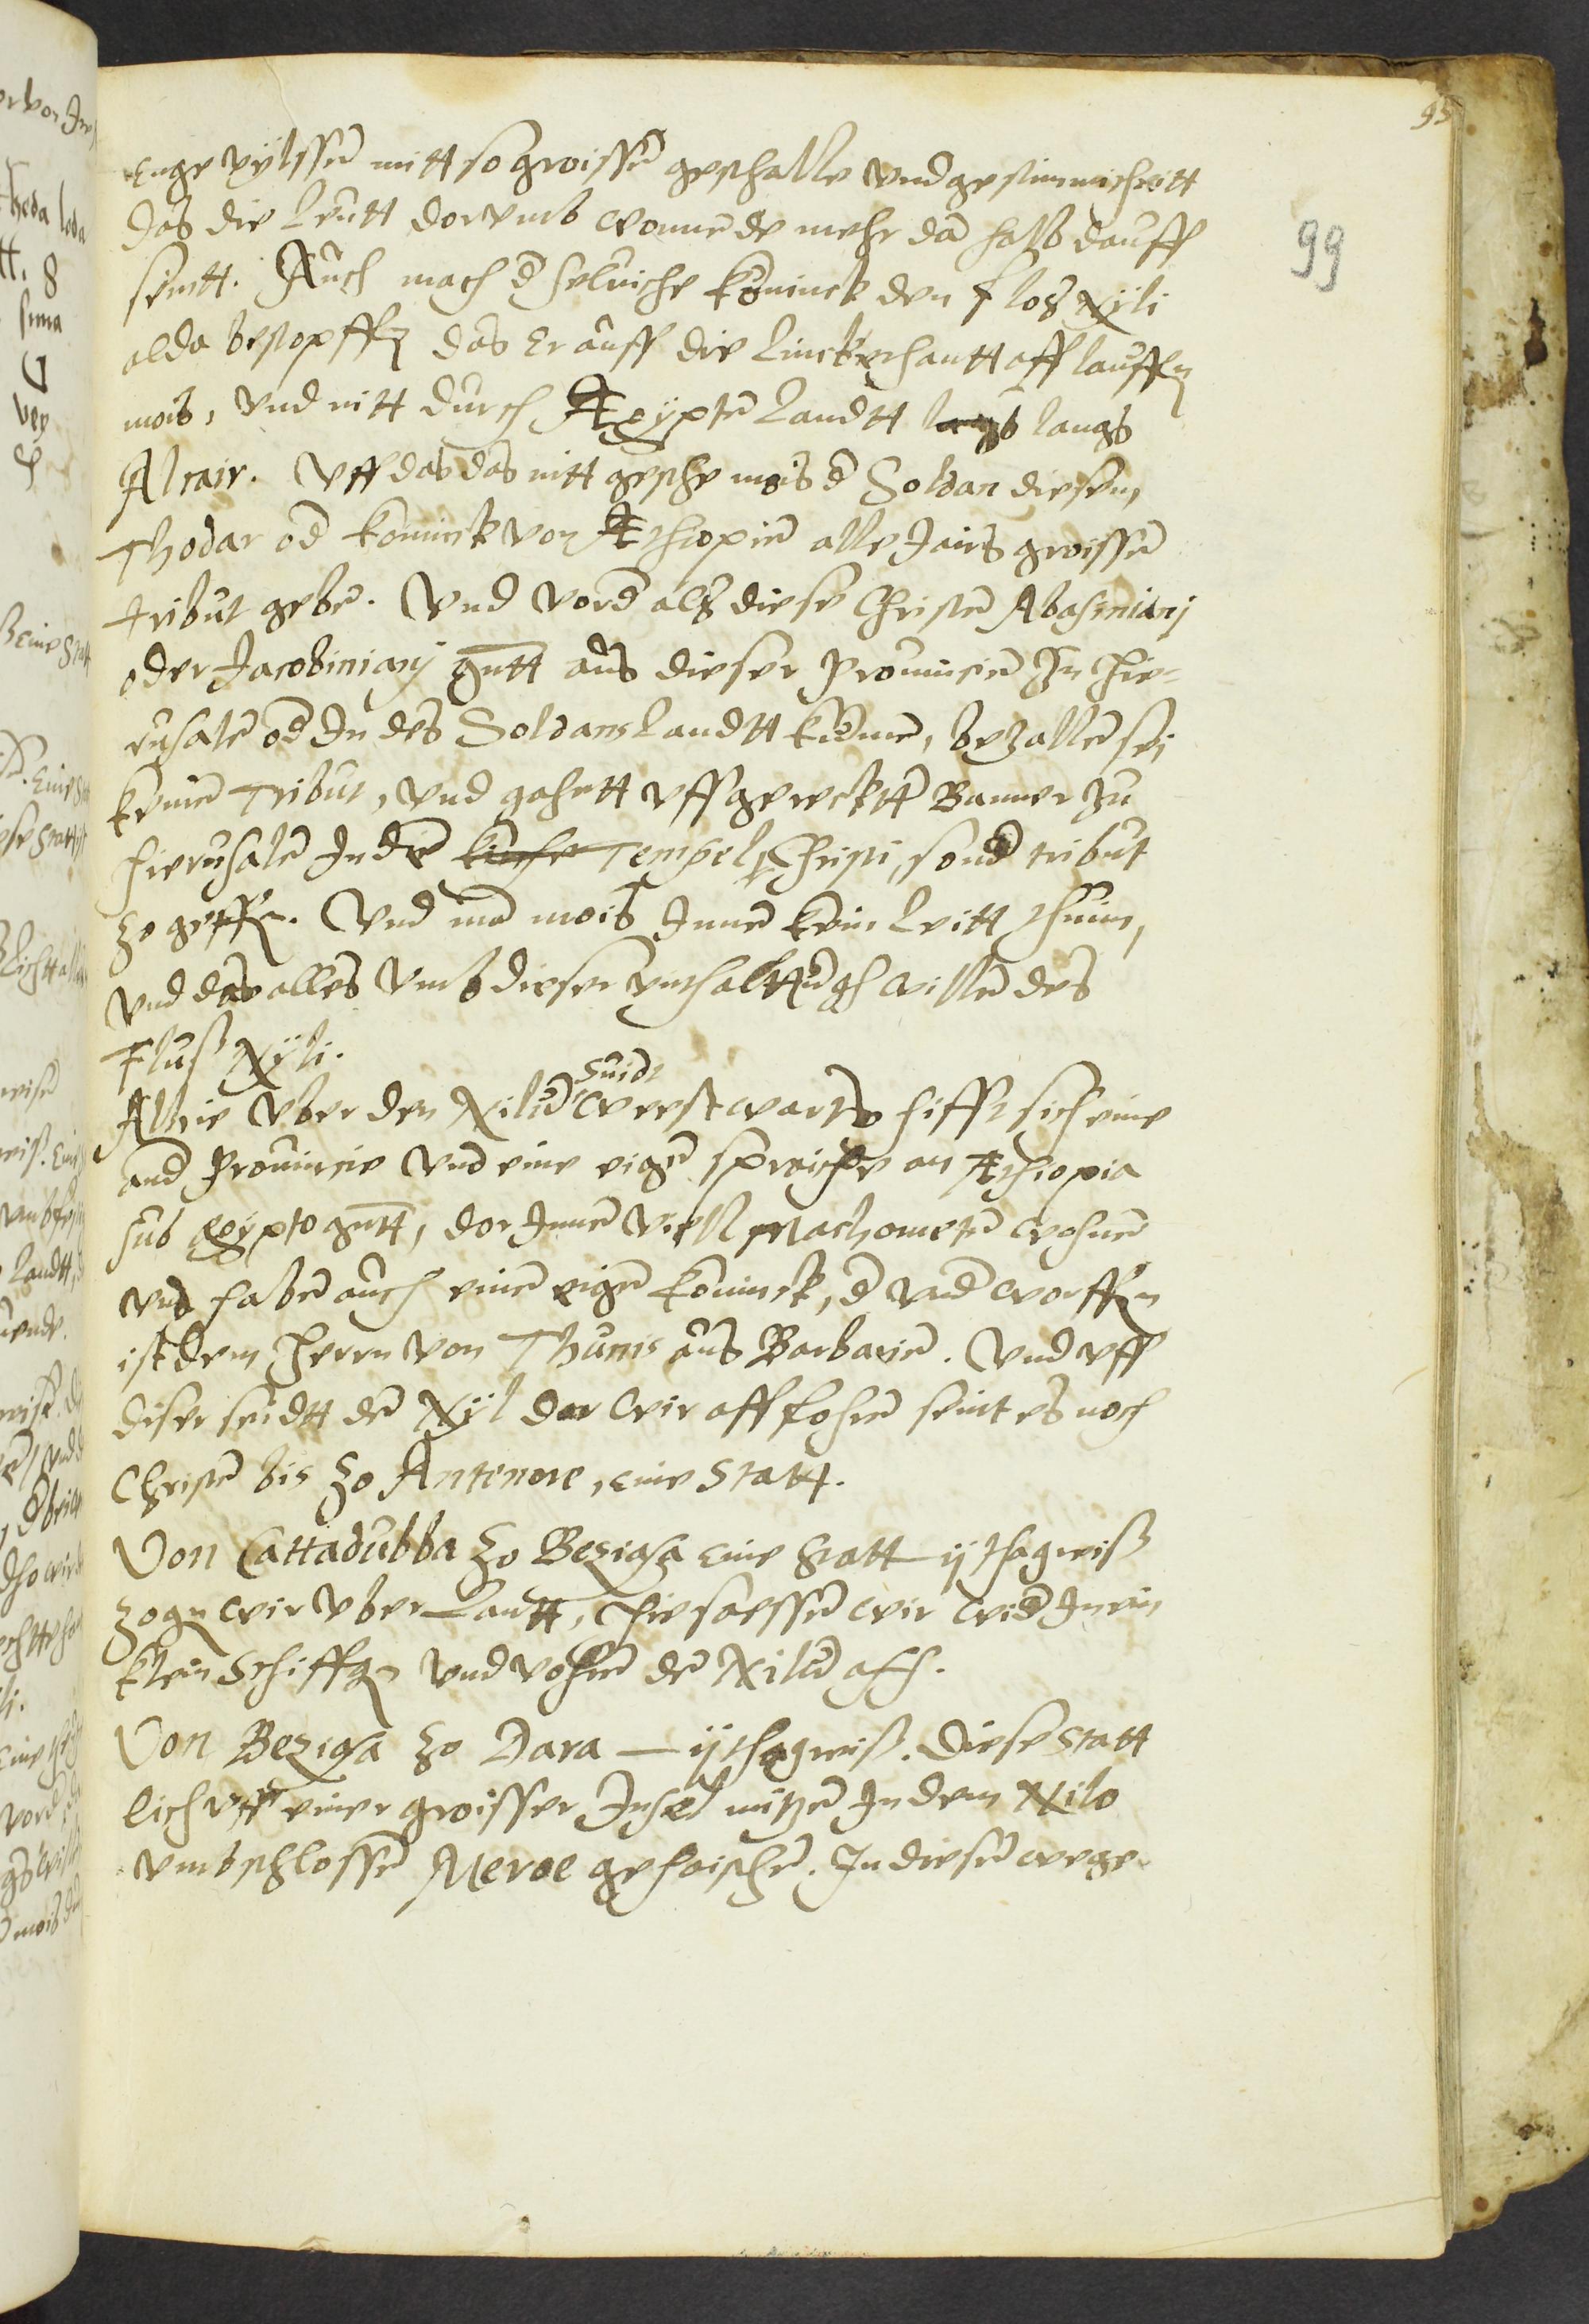 99
enge vylssen mitt so groissen geschalle vnd gestummicheitt
das die leutt dorvmb wonnende mehr dan halb dauff
seintt. Auch mach d selniche köninck den floß Nyli
alda bestopffen das er auff die linckerhantt aff lauffen
mois, vnd nitt durch Ægypten landtt langs langs
Alcair. Vff das das nitt geschee mois d Soldan diesem
Thodar od köninck von Æthiopien alle Jairs groissen
tribut geben. Vnd vord als diese Christen Abasiniani
oder Jacobiniani gntt aus dieser Prouincien In Hie-
rusalem od In des Soldans landtt kommen, bezallen sei
keinen Tribut, vnd gahntt vffgereckten Banner zu
Hierusalem In den kirche Tempel Christi, sond tribut
zo geffen. Vnd man mois Innen kein leitt thuin,
vnd das alles vmb dieser enthaltungh willen des
Fluß Nyli.
Alhie vber den Nilum Suidt westwarts hifft sich eine
and Prouincie vnd eine eigen spraiche an Æthiopia
sub Egypto gntt, dor Innen viell Machometen wohnen
vnd haben auch einen eigen köninck, d vnd worffen
ist dem Herrn von Thunis aus Barbarien. Vnd vff
diser seidtt den Nyl dar wir aff fohren seint es noch
Christen bis zo Antenore, eine Statt.
Von Cattadubba zo Beziasa eine Statt — ij thagreiß
zogen wir vber Lantt, Hie saessen wir wid In ein
klein Schiffgen vnd vohren den Nilum aff.
Von Beziasa zo Dara — ij thagreiß. Diese Statt
licht vff einer groisser Insel mitzen In dem Nilo
vmbschlossen Meroe gehaischen. In diesen wege